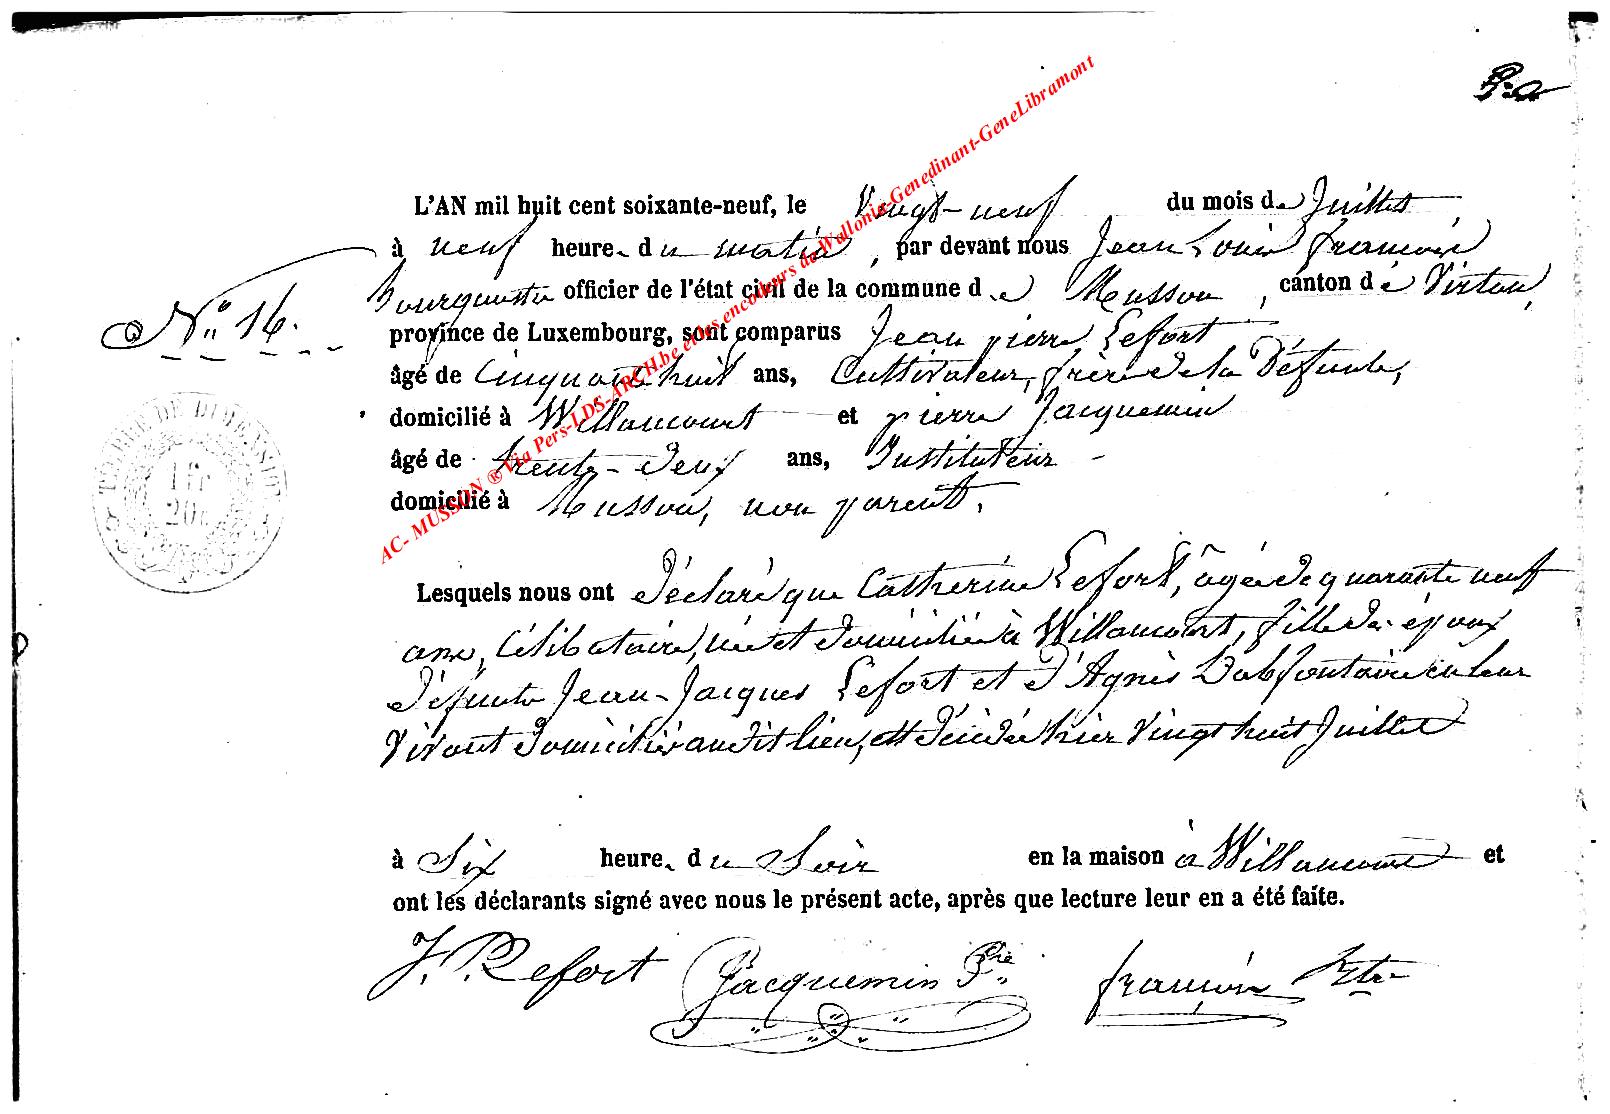 N° 16.
L'AN mil huit cent soixante-neuf, le Vingt-neuf du mois de Juillet
à neuf heure. du matin, par devant nous Jean Louis françois
officier de l'état civil de la commune de Musson, canton de Virton,
province de Luxembourg, sont comparus Jean pierre Lefort
âgé de Cinquante huit ans, Cultivateur, frère de la Défunte,
domicilié à Willancourt et pierre Jacquemin
âgé de trente-deux ans, Instituteur
domicilié à Musson, non parent.
Lesquels nous ont déclaré que Catherine Lefort, âgée de quarante neuf
ans, Célibataire, née et domiciliée à Willancourt, fille des époux
défunts Jean-Jacques Lefort et d'Agnès Habfontaine en leur
vivant domiciliés audit lieu, est décédée hier vingt huit Juillet
à Six heure. du Soir en la maison à Willancourt et
ont les déclarants signé avec nous le présent acte, après que lecture leur en a été faite.
J. P. Lefort Jacquemin Pre françois
TIMBRE DE DIMENSION
1 fr
20c
AC- MUSSON ® Via Pers-LDS-ARCH.be et les encodeurs de Wallonia-Genedinant-GeneLibramont